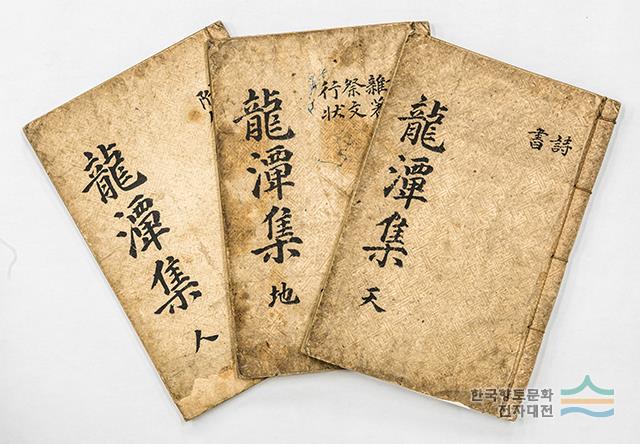 詩
書
龍潭集
天
雜著
祭文
行状
龍潭集
地
附
龍潭集
人
한국향토문화
전자대전